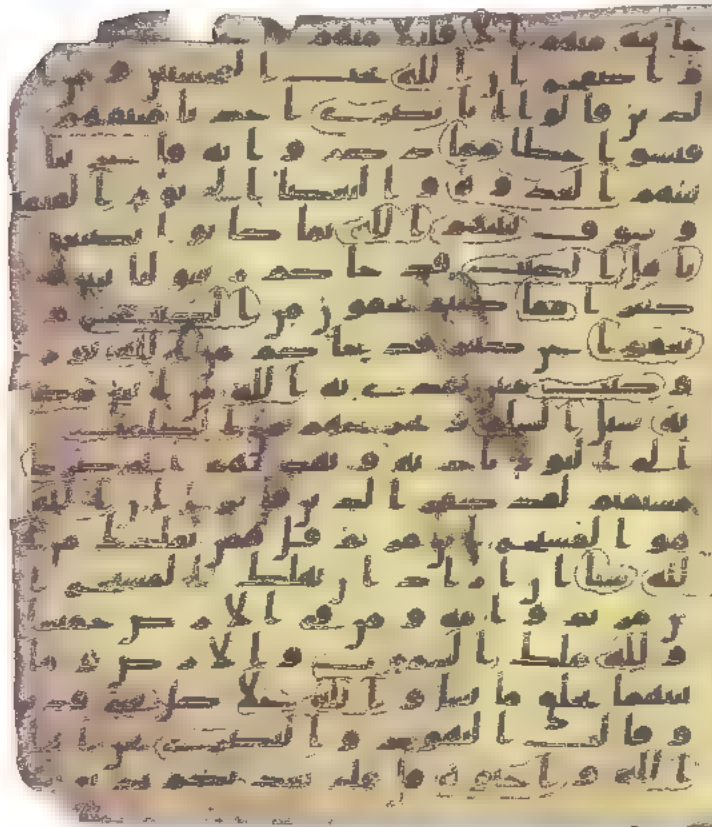 خاينه منهم الا قليلا منهم
واصفح ان الله يحب المحسنين ومن ا
لذين قالوا انا نصرى اخذنا ميثقهم
فنسوا حظا مما ذكروا به فاغرينا
بينهم العدوة والبغضا الى يوم القيمة
وسوف ينبئهم الله بما كانوا يصنعون
ياهل الكتب قد جاكم رسولنا يبين لكم
كثيرا مما كنتم تخفون من الكتب و
يعفوا عن كثير قد جاكم من الله نور
وكتب مبين يهدى به الله من اتبع رضو
نه سبل السلم ويخرجهم من الظلمت
الى النور باذنه ويهديهم الى صرط
مستقيم لقد كفر الذين قالوا ان الله
هو المسيح ابن مريم قل فمن يملك من ا
لله شيا ان اراد ان يهلك المسيح ا
بن مريم وامه ومن فى الارض جميعا
ولله ملك السموت والارض وما
بينهما يخلق ما يشا والله على كل شى قدير
وقالت اليهود والنصرى نحن ابنوا
الله واحبوه قل فلم يعذبكم بذنو